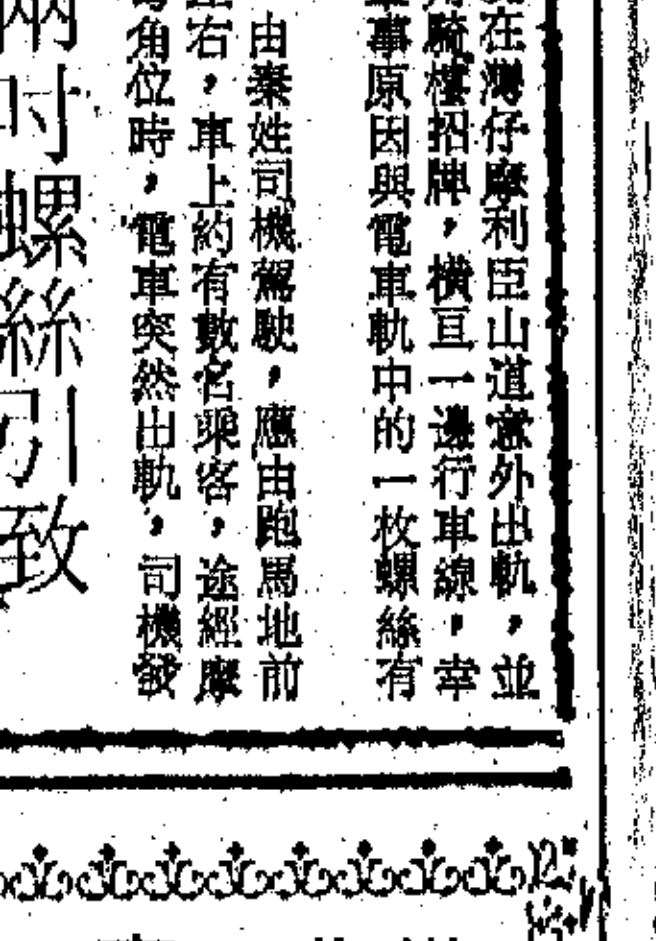 在灣仔摩利臣山道意外出軌，並
騎樓招牌，橫亘一邊行車線，幸
事原因與電車軌中的一枚螺絲有
由秦姓司機駕駛，應由跑馬地前
右，車上約有數名乘客，途經摩
角位時，電車突然出軌，司機發
兩吋螺絲引致